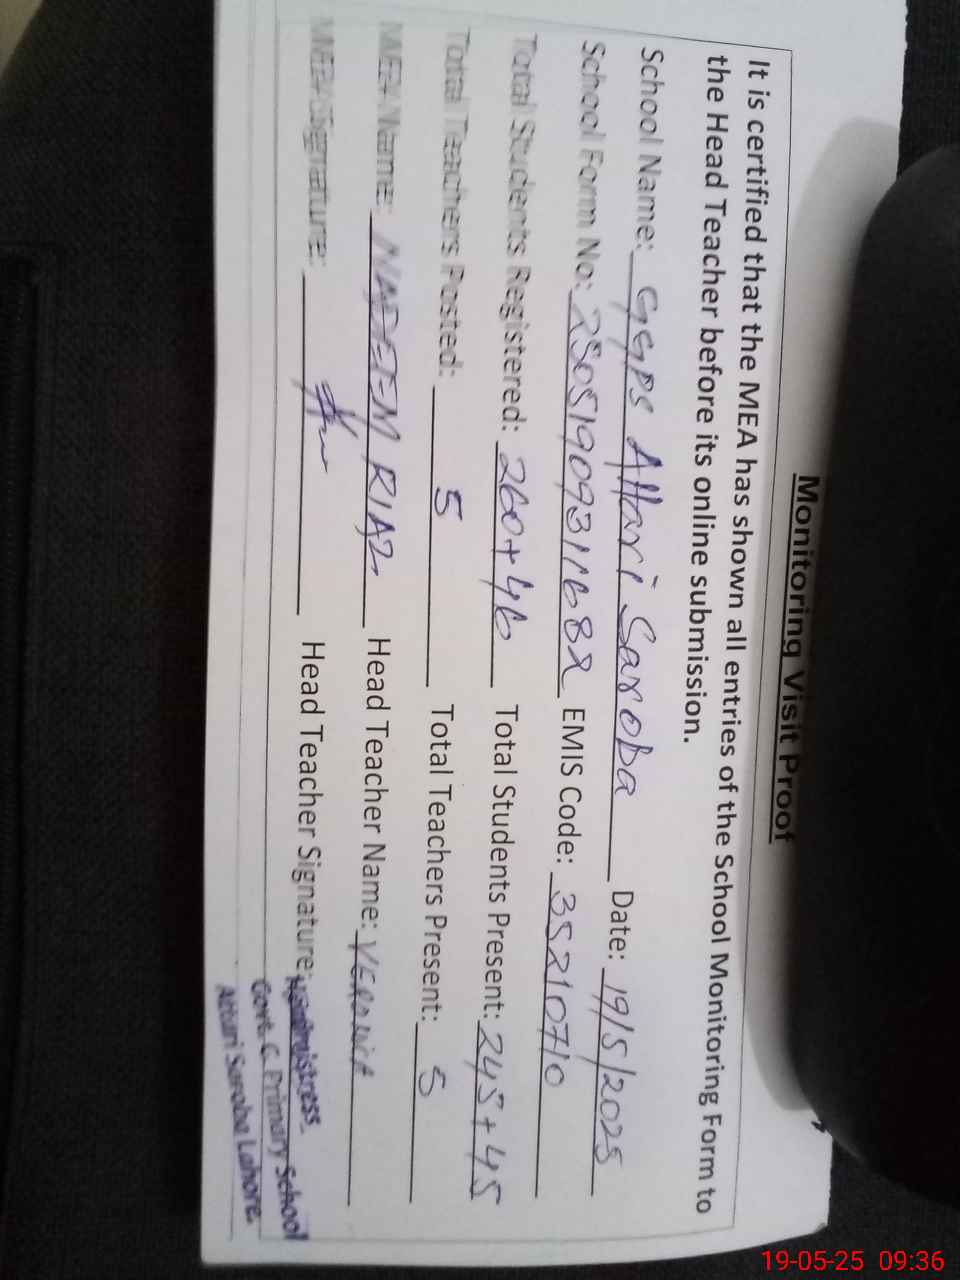 Monitoring Visit Proof
It is certified that the MEA has shown all entries of the School Monitoring Form to
the Head Teacher before its online submission.
School Name: GGPS Attari Saroba Date: 19/5/2025
School Form No: 25051909311682 EMIS Code: 35210710
Total Students Registered: 260+46 Total Students Present: 245+45
Total Teachers Posted: 5 Total Teachers Present: 5
MEA Name: NADEEM RIAZ Head Teacher Name:
MEA Signature: Head Teacher Signature:
Headmistress
Govt. G. Primary School
Attari Saroba Lahore.
19-05-25 09:36